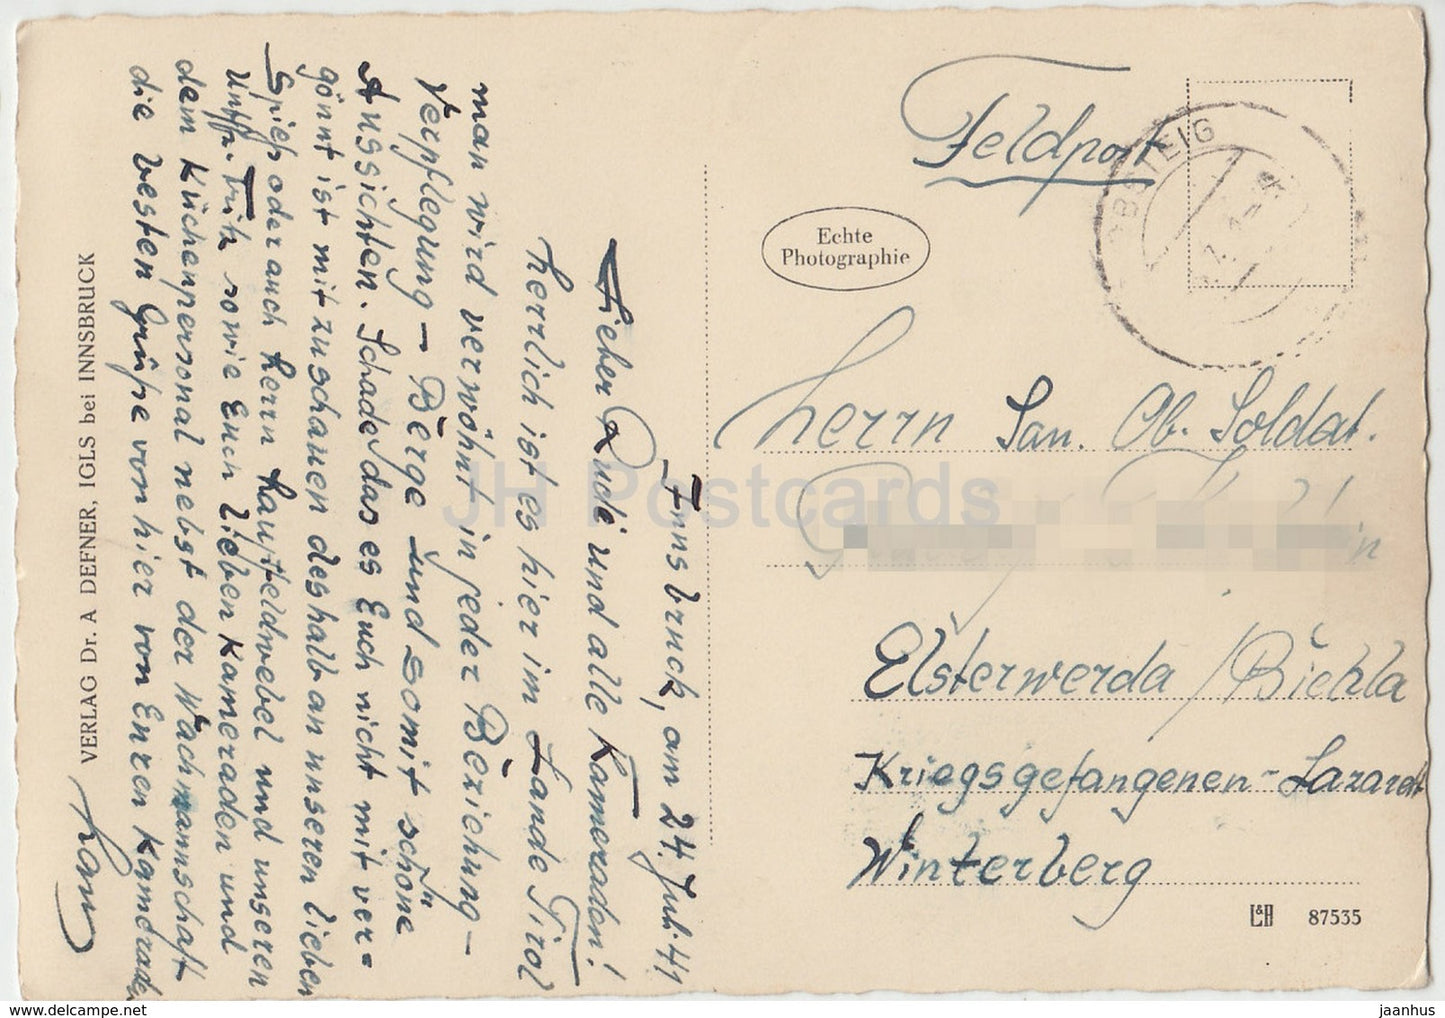 Innsbruck, am 24. Juli 41
Lieber Rudi und alle Kameraden!
Herrlich ist es hier im Lande Tirol
man wird verwöhnt in jeder Beziehung –
Verpflegung – Berge und somit schöne
Aussichten. Schade das es Euch nicht mit ver=
gönnt ist mit zuschauen deshalb an unseren lieben
Spieß oder auch Herrn Hauptfeldwebel und unseren
Uffz. Fritz sowie Euch lieben Kameraden und
dem Küchenpersonal nebst der Wachmannschaft
die besten Grüße von hier von Euren Kameraden
VERLAG Dr. A DEFNER, IGLS bei INNSBRUCK
Feldpost
OBSTEIG
Echte
Photographie
Herrn San. Ob. Soldat.
Elsterwerda/Biehla
Kriegsgefangenen-Lazarett
Winterberg
L&B 87535
JH Postcards
hip-postcard.com/store/jh-postcards
jaanhus